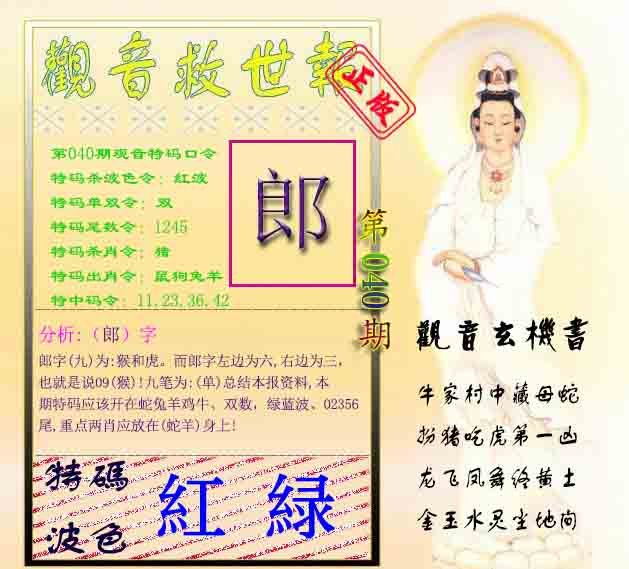 觀音救世報
正版
第040期观音特码口令
特码杀波色令：紅波
特码单双令：双
特码尾数令：1245
特码杀肖令：猪
特码出肖令：鼠狗兔羊
特中码令：11.23.36.42
郎
第040期
分析:（郎）字
郎字(九)为:猴和虎。而郎字左边为六,右边为三，
也就是说09(猴)!九笔为:(单)总结本报资料,本
期特码应该开在蛇兔羊鸡牛、双数，绿蓝波、02356
尾,重点两肖应放在(蛇羊)身上!
特碼
波色
紅 緑
觀音玄機書
牛家村中藏母蛇
扮猪吃虎第一凶
龙飞凤舞终黄土
金玉水灵尘地间